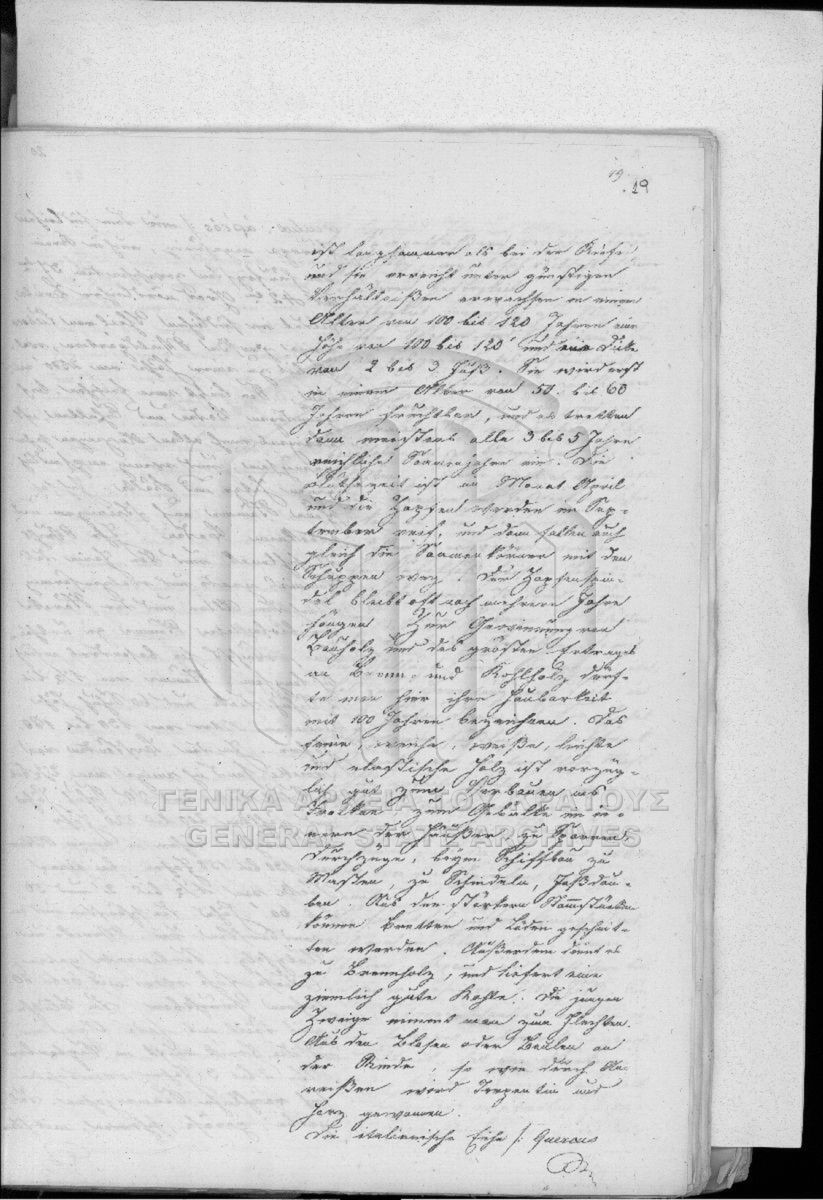 19.
19
ist langsamer als bei der Kiefer
und sie erreicht unter günstigen
Verhältnißen erwachsen in einem
Alter von 100 bis 120 Jahren eine
Höhe von 100 bis 120' und eine Dicke
von 2 bis 3 Fuß. Sie wird erst
in einem Alter von 50 bis 60
Jahren fruchtbar, und es tretten
dann meistens alle 3 bis 5 Jahre
reichliche Saamenjahre ein. Die
Blüthezeit ist im Monat April
und die Zapfen werden im Sep-
tember reif, und dann fallen auch
gleich die Saamenkörner mit den
Schuppen weg. Die Zapfenspin-
del bleibt oft noch mehrere Jahre
hängen. Zur Gewinnung von
Bauholz und des grösten Ertrages
an Brenn- und Kohlholz dürf-
te man hier ihre Haubarkeit
mit 100 Jahren bezeichnen. Das
feine, weiche, weiße, leichte
und elastische Holz ist vorzüg-
lich gut zum Verbauen ins
Trockne zum Gebälke im in-
nern der Häußer, zu Sparren,
Durchzüge, beym Schiffbau zu
Masten, zu Schindeln, Faßdau-
ben. Aus den stärkern Stammstücken
können Bretter und Läden geschnit-
ten werden. Außerdem dient es
zu Brennholz, und liefert eine
ziemlich gute Kohle. Die jungen
Zweige nimmt man zum Flechten.
Aus den Blasen oder Beulen an
der Rinde, so wie durch An-
reißen wird Terpentin und
Harz gewonnen.
Die italienische Eiche /: Quercus
ΓΕΝΙΚΑ ΑΡΧΕΙΑ ΤΟΥ ΚΡΑΤΟΥΣ
GENERAL STATE ARCHIVES